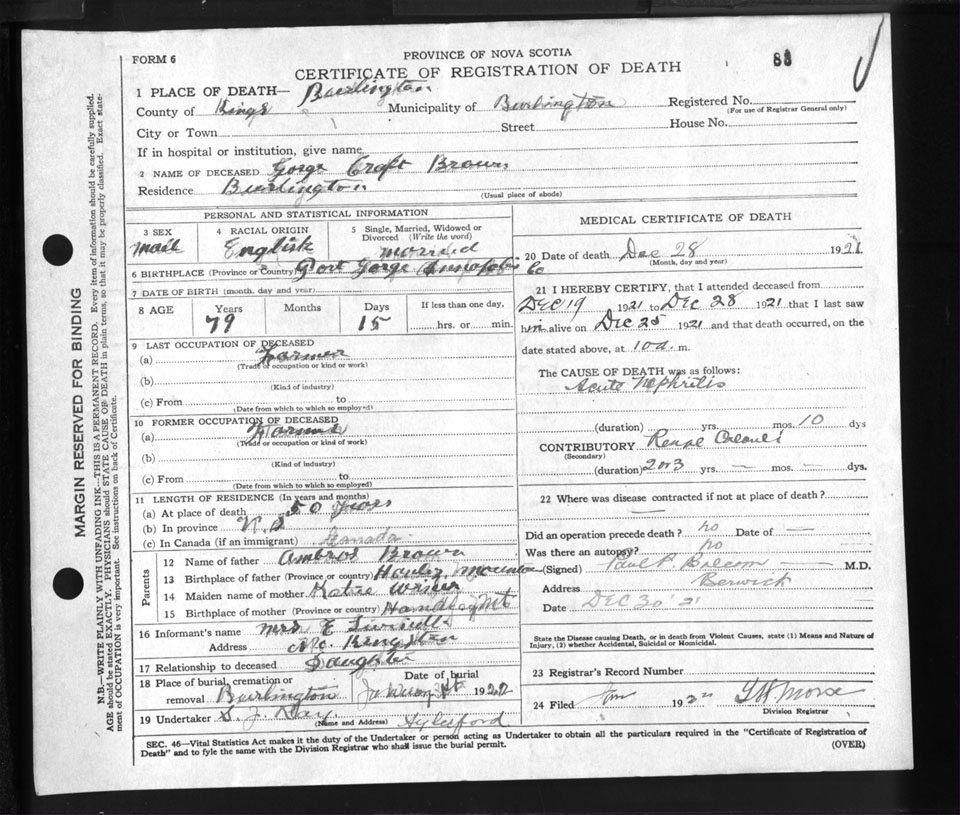 FORM 6
PROVINCE OF NOVA SCOTIA
88
CERTIFICATE OF REGISTRATION OF DEATH
1 PLACE OF DEATH— Burlington
County of Kings Municipality of Burlington Registered No.
(For use of Registrar General only)
City or Town Street House No.
If in hospital or institution, give name
2 NAME OF DECEASED Gorge Croft Brown
Residence Burlington
(Usual place of abode)
PERSONAL AND STATISTICAL INFORMATION
3 SEX 4 RACIAL ORIGIN 5 Single, Married, Widowed or Divorced (Write the word)
Mail English Married
6 BIRTHPLACE (Province or Country) Port Gorge Annapolis Co
7 DATE OF BIRTH (month, day and year)
8 AGE Years Months Days If less than one day,
79 15 hrs. or min.
9 LAST OCCUPATION OF DECEASED
(a) Farmer
(Trade or occupation or kind or work)
(b)
(Kind of industry)
(c) From to
(Date from which to which so employed)
10 FORMER OCCUPATION OF DECEASED
(a) Farmer
(Trade or occupation or kind of work)
(b)
(Kind of industry)
(c) From to
(Date from which to which so employed)
11 LENGTH OF RESIDENCE (In years and months)
(a) At place of death 50 years
(b) In province N.S
(c) In Canada (if an immigrant) Canada
Parents
12 Name of father Ambros Brown
13 Birthplace of father (Province or country) Mountain
14 Maiden name of mother
15 Birthplace of mother (Province or country) Mt
16 Informant's name Mrs E
Address No. Kingston
17 Relationship to deceased Daughter
18 Place of burial, cremation or removal Burlington Date of burial 1922
19 Undertaker S. J. Aylesford
(Name and Address)
MEDICAL CERTIFICATE OF DEATH
20 Date of death Dec 28 1921
(Month, day and year)
21 I HEREBY CERTIFY, that I attended deceased from
DEC 19 1921 to DEC 28 1921 that I last saw
him alive on DEC 25 1921 and that death occurred, on the
date stated above, at 10 a. m.
The CAUSE OF DEATH was as follows:
Acute Nephritis
(duration) yrs. mos. 10 dys
CONTRIBUTORY Renal
(Secondary)
(duration) 2 or 3 yrs. — mos. — dys.
22 Where was disease contracted if not at place of death?
—
Did an operation precede death? no Date of —
Was there an autopsy? no
(Signed) Paul P. Balcom M.D.
Address Berwick
Date DEC 30 '21
State the Disease causing Death, or in death from Violent Causes, state (1) Means and Nature of
Injury, (2) whether Accidental, Suicidal or Homicidal.
23 Registrar's Record Number
24 Filed Jan 192 Morse
Division Registrar
SEC. 46—Vital Statistics Act makes it the duty of the Undertaker or person acting as Undertaker to obtain all the particulars required in the "Certificate of Registration of
Death" and to fyle the same with the Division Registrar who shall issue the burial permit.
(OVER)
MARGIN RESERVED FOR BINDING
N.B.—WRITE PLAINLY WITH UNFADING INK—THIS IS A PERMANENT RECORD. Every item of information should be carefully supplied.
AGE should be stated EXACTLY. PHYSICIANS should STATE CAUSE OF DEATH in plain terms, so that it may be properly classified. Exact state-
ment of OCCUPATION is very important. See instructions on back of Certificate.